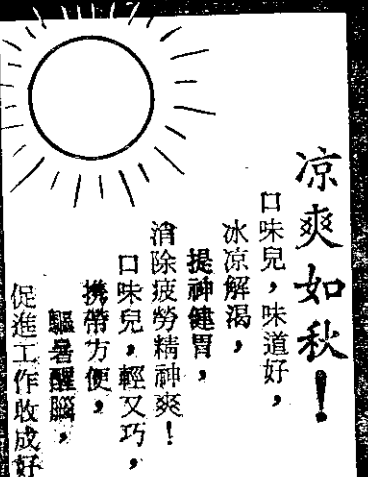 凉爽如秋！
口味兒，味道好，
冰凉解渴，
提神健胃，
消除疲勞精神爽！
口味兒，輕又巧，
携帶方便，
驅暑醒腦，
促進工作收成好